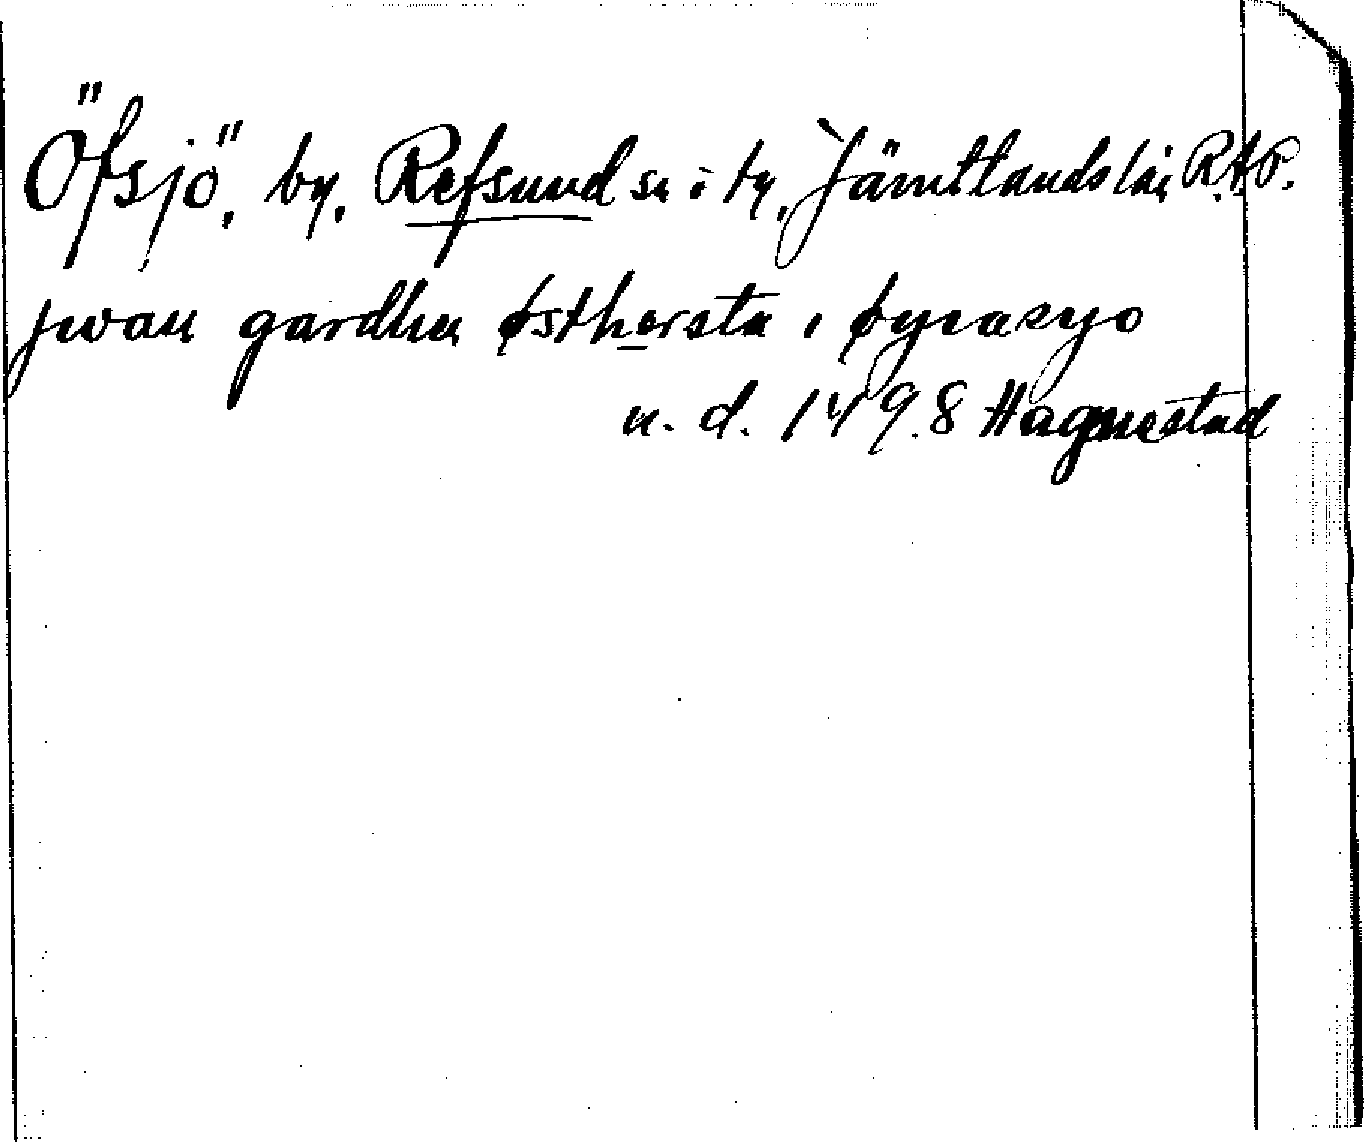 Öfsjö, by, Refsund sn i ty, Jämtlands län R.A.P.
jwan gardhn østhersta i øyrasyo
u. d. 1498 Hagnestad